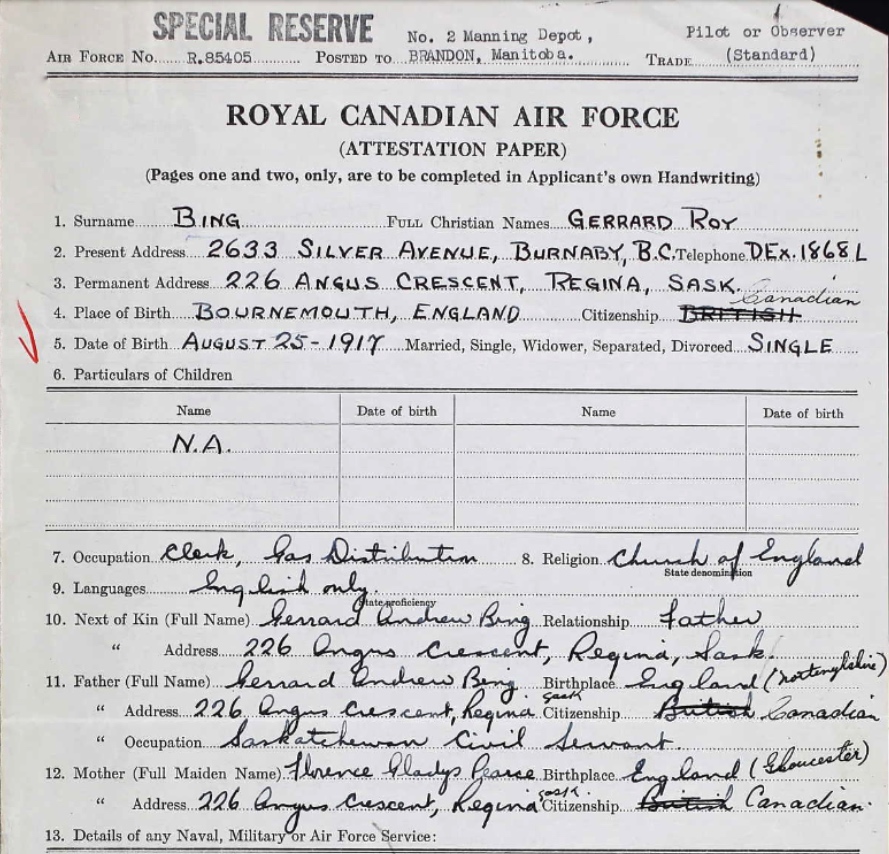 SPECIAL RESERVE
No. 2 Manning Depot, Pilot or Observer
AIR FORCE No. R.85405 POSTED TO BRANDON, Manitoba. TRADE (Standard)
ROYAL CANADIAN AIR FORCE
(ATTESTATION PAPER)
(Pages one and two, only, are to be completed in Applicant's own Handwriting)
1. Surname BING FULL Christian Names GERRARD ROY
2. Present Address 2633 SILVER AVENUE, BURNABY, B.C. Telephone DEX. 1868 L
3. Permanent Address 226 ANGUS CRESCENT, REGINA, SASK.
Canadian
4. Place of Birth BOURNEMOUTH, ENGLAND Citizenship BRITISH
5. Date of Birth AUGUST 25-1917 Married, Single, Widower, Separated, Divorced SINGLE
6. Particulars of Children
Name Date of birth Name Date of birth
N.A.
7. Occupation Clerk, Gas Distribution 8. Religion Church of England
State denomination
9. Languages English only.
State proficiency
10. Next of Kin (Full Name) Gerrard Andrew Bing Relationship Father
" Address 226 Angus Crescent, Regina, Sask.
11. Father (Full Name) Gerrard Andrew Bing Birthplace England
" Address 226 Angus Crescent, Regina Sask Citizenship British Canadian
" Occupation Saskatchewan Civil Servant.
12. Mother (Full Maiden Name) Florence Gladys Pearce Birthplace England (Gloucester)
" Address 226 Angus Crescent, Regina Sask. Citizenship British Canadian.
13. Details of any Naval, Military or Air Force Service: